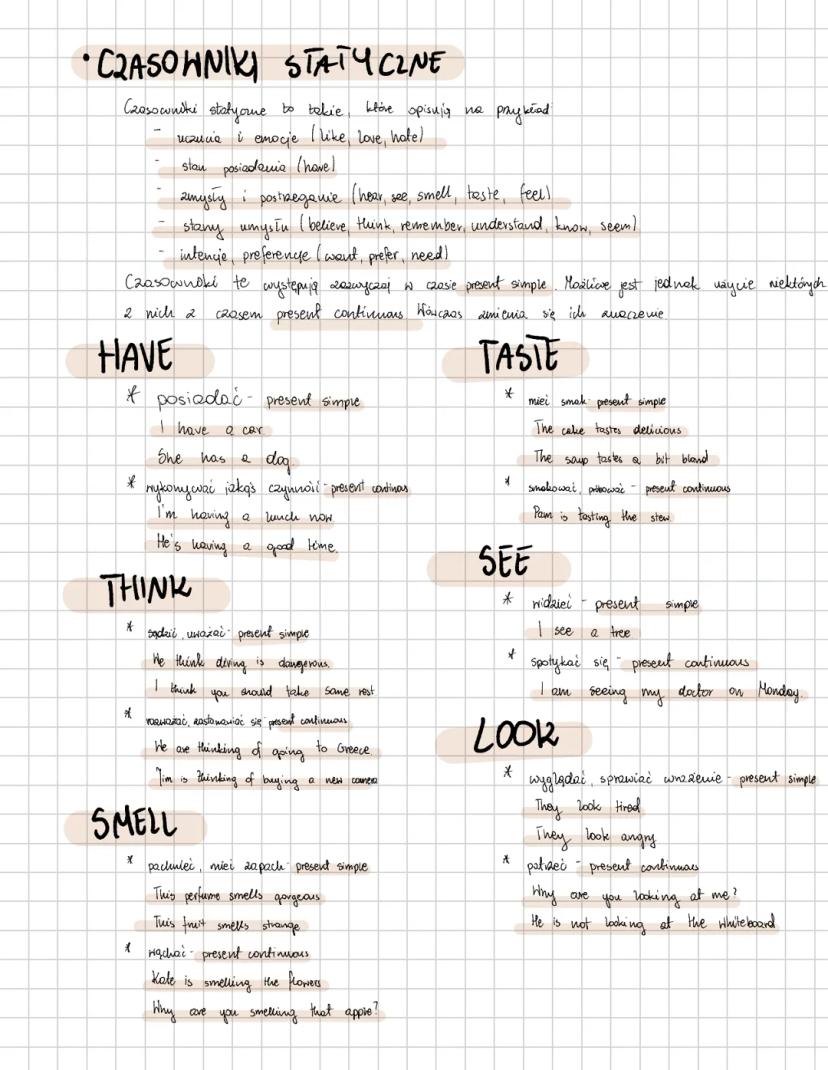 • CZASOWNIKI STATYCZNE
Czasowniki statyczne to takie, które opisują na przykład
- uczucia i emocje (like, love, hate)
- stan posiadania (have)
- zmysły i postrzeganie (hear, see, smell, taste, feel)
- stany umysłu (believe, think, remember, understand, know, seem)
- intencje, preferencje (want, prefer, need)
Czasowniki te występują zazwyczaj w czasie present simple. Możliwe jest jednak użycie niektórych
z nich z czasem present continuous. Wówczas zmienia się ich znaczenie
HAVE
* posiadać - present simple
I have a car
She has a dog
* wykonywać jakąś czynność - present continous
I'm having a lunch now
He's having a good time.
THINK
* sądzić, uważać - present simple
We think diving is dangerous.
I think you should take some rest
* rozważać, zastanawiać się present continuous
We are thinking of going to Greece.
Jim is thinking of buying a new camera
SMELL
* pachnieć, mieć zapach - present simple
This perfume smells gorgeous
This fruit smells strange
* wąchać - present continuous
Kate is smelling the flowers
Why are you smelling that apple?
TASTE
* mieć smak - present simple
The cake tastes delicious
The soup tastes a bit bland
* smakować, próbować - present continuous
Pam is tasting the stew
SEE
* widzieć - present simple
I see a tree
* spotykać się - present continuous
I am seeing my doctor on Monday.
LOOK
* wyglądać, sprawiać wrażenie - present simple
They look tired
They look angry
* patrzeć - present continuous
Why are you looking at me?
He is not looking at the whiteboard